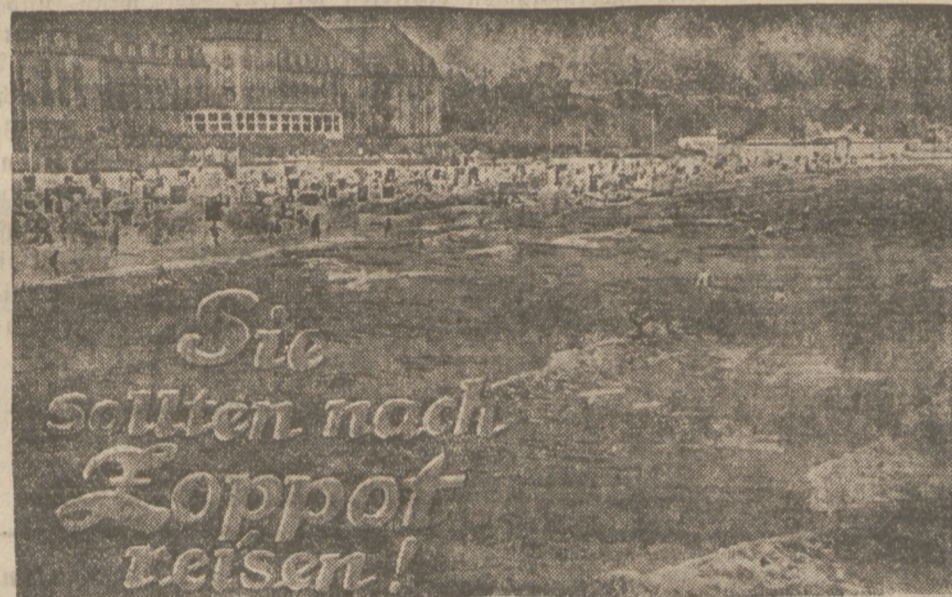 Sie
sollten nach
Zoppot
reisen!